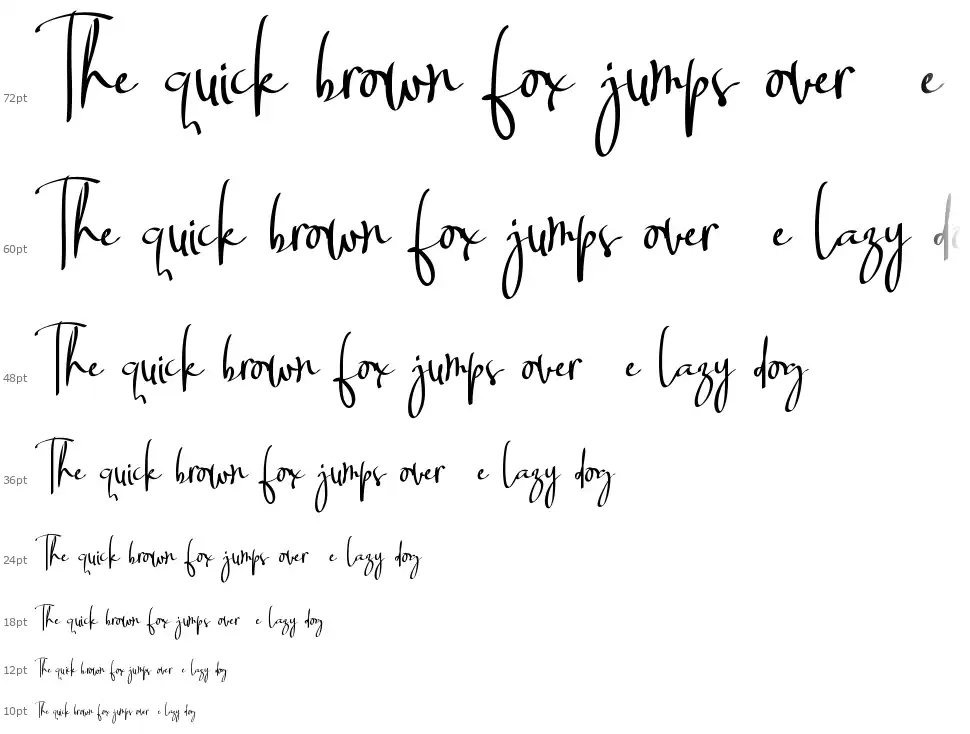 72pt The quick brown fox jumps over e
60pt The quick brown fox jumps over e lazy do
48pt The quick brown fox jumps over e lazy dog
36pt The quick brown fox jumps over e lazy dog
24pt The quick brown fox jumps over e lazy dog
18pt The quick brown fox jumps over e lazy dog
12pt The quick brown fox jumps over e lazy dog
10pt The quick brown fox jumps over e lazy dog